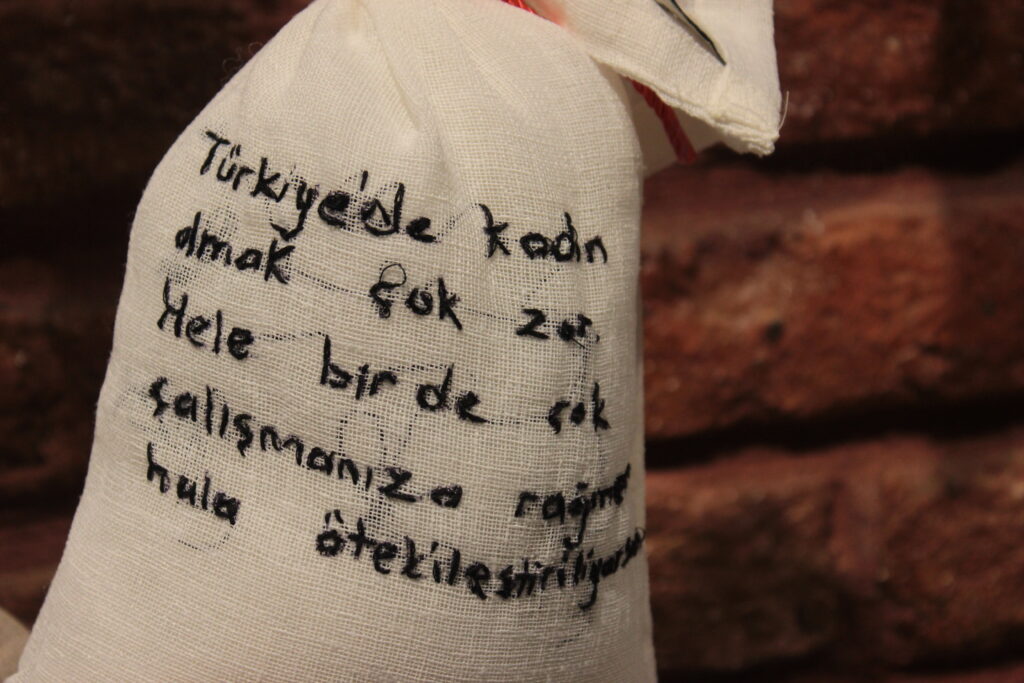 Türkiye'de kadın
olmak çok zor.
Hele bir de çok
çalışmanıza rağmen
hala ötekileştiriliyorsan